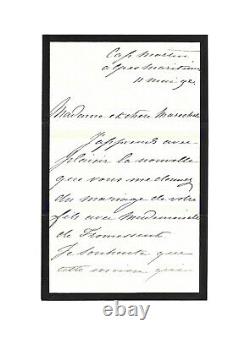 Cap Martin
Alpes Maritimes
11 mai 92
Madame et chère Maréchale
J'apprends avec
plaisir la nouvelle
que vous me donnez
du mariage de votre
fils avec Mademoiselle
de
Je souhaite que
cette union
ebay